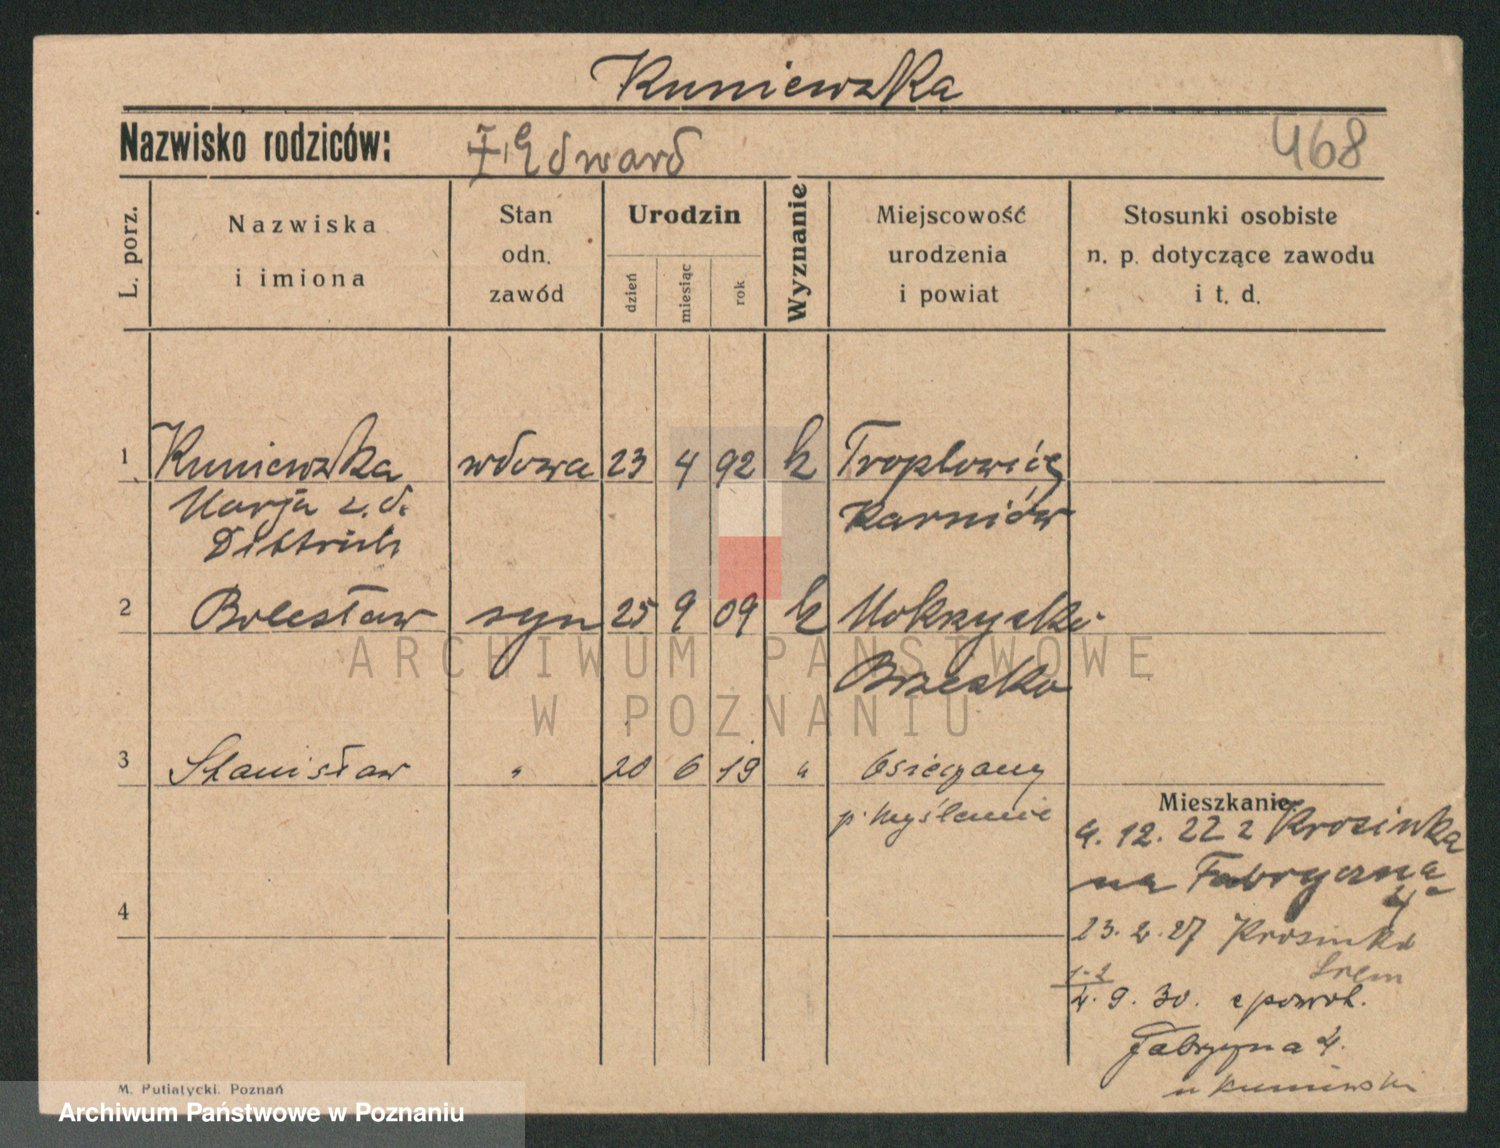 Kuniewska
Nazwisko rodziców: Edward 468
L. porz.
Nazwiska
i imiona
Stan
odn.
zawód
Urodzin
dzień
miesiąc
rok
Wyznanie
Miejscowość
urodzenia
i powiat
Stosunki osobiste
n. p. dotyczące zawodu
i t. d.
1 Kuniewska wdowa 23 4 92 k Troplowice
Marja z. d. Karniów
Dittrich
2 Bolesław syn 25 9 09 k Mokrzyska
Brzesko
3 Stanisław " 20 6 19 " Osieczany
p. Myślenic
Mieszkanie
9. 12. 22 z Krosinka
na Fabryczną
4
4
23. 2. 27 Krosinko
Śrem
1-2
4. 9. 30. z powrot.
Fabryczna 4.
u Kuniewski
ARCHIWUM PAŃSTWOWE
W POZNANIU
M. Putiatycki. Poznań
Archiwum Państwowe w Poznaniu